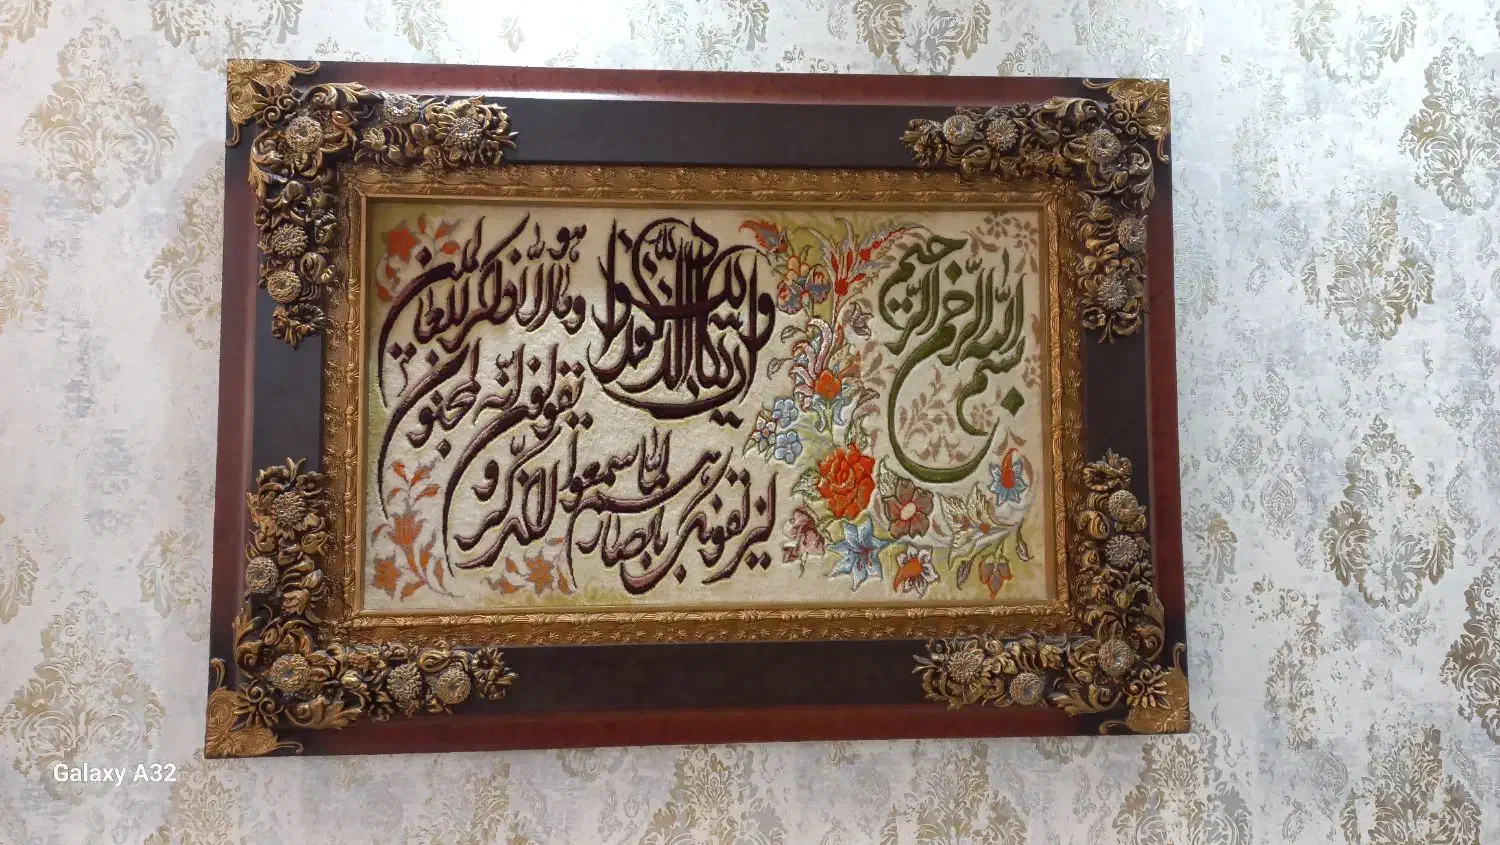 بسم الله الرحمن الرحيم
وإن يكاد الذين كفروا
ليزلقونك بأبصارهم لما سمعوا الذكر و
يقولون إنه لمجنون
وما هو إلا ذكر للعالمين
Galaxy A32